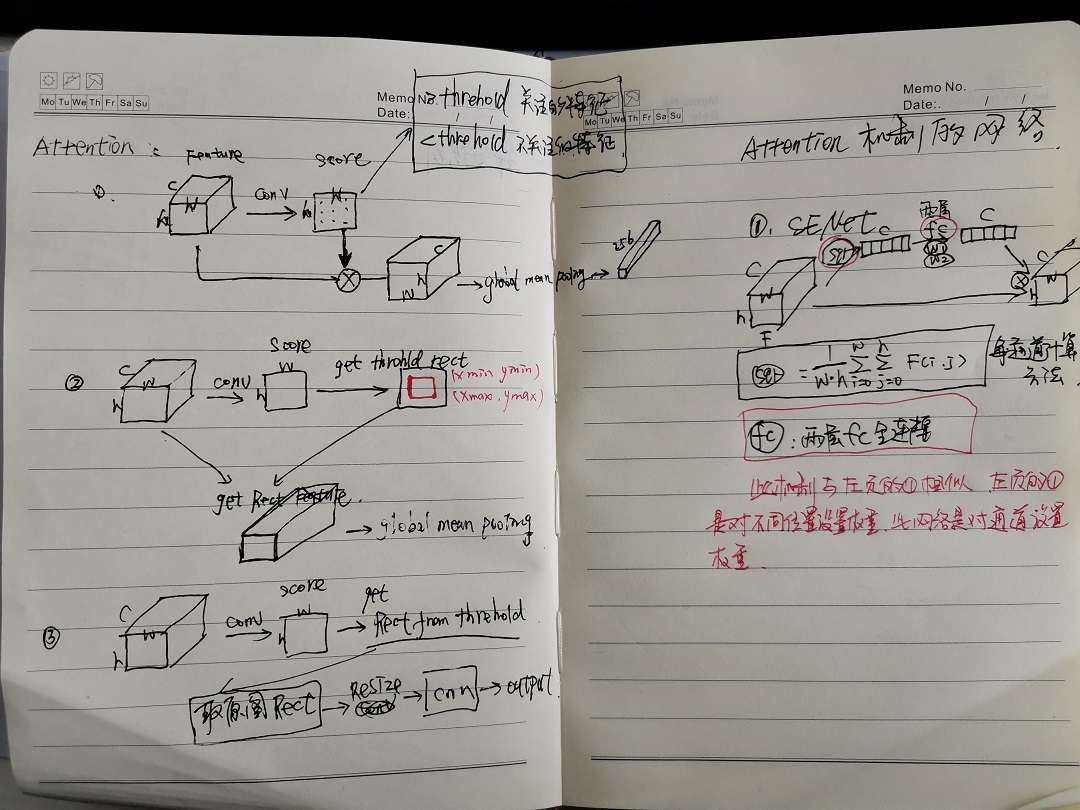 Mo Tu We Th Fr Sa Su
Memo No.
Date: / /
≥ threhold 关注的特征
< threhold 不关注的特征
Attention :
Feature
score
①
C
W
h
conv
W
h
C
h
W
global mean pooling
256
②
C
W
h
conv
Score
W
h
get throhld rect
(xmin ymin)
(xmax, ymax)
get Rect Feature.
global mean pooling
③
C
W
h
conv
score
W
h
get
Rect from threhold
取原图Rect
Resize
cnn
output
Mo Tu We Th Fr Sa Su
Memo No.
Date: / /
Attention 机制的网络
①. SENet
C
W
h
F
sq
C
两层
fc
W1
W2
C
C
W
h
sq = 1/W·h W∑i=0 h∑j=0 F(i,j)
每通道计算
方法.
fc : 两层fc全连接
此机制与左页的①相似 左页的①
是对不同位置设置权重. 此网络是对通道设置
权重.